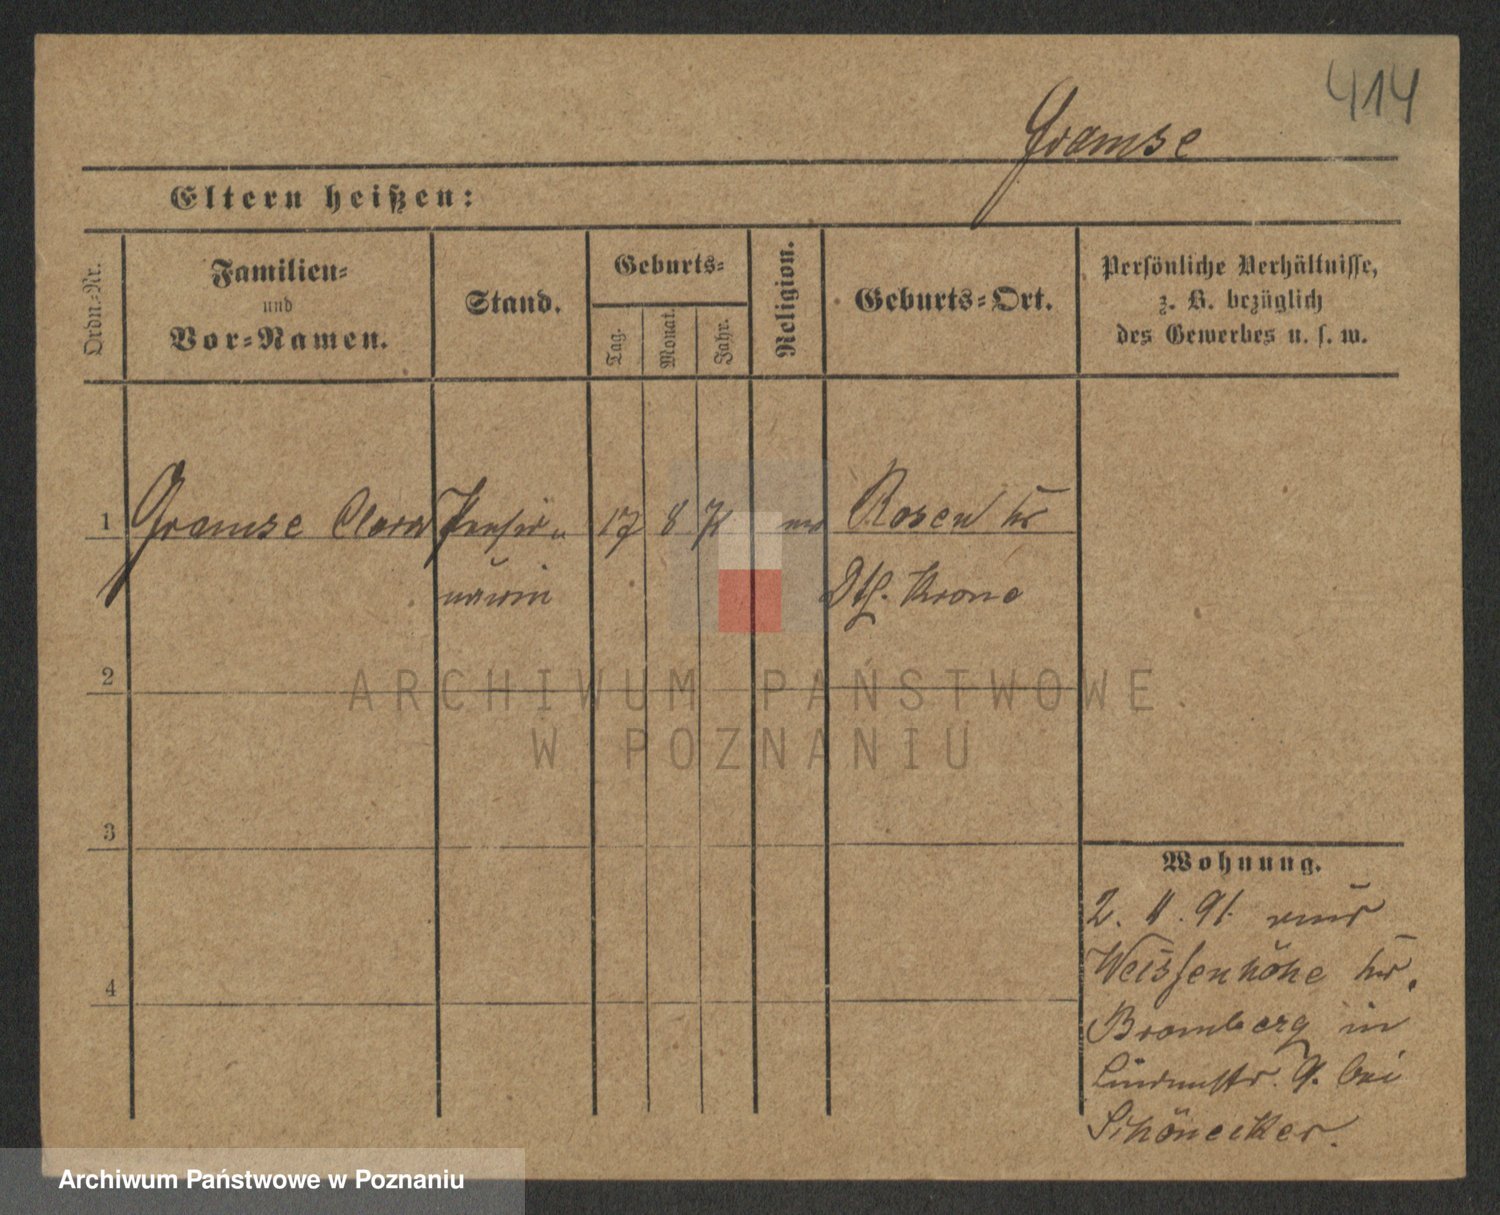 414
Gramse
Eltern heißen:
Ordn.-Nr.
Familien-
und
Vor-Namen.
Stand.
Geburts-
Tag.
Monat.
Jahr.
Religion.
Geburts-Ort.
Persönliche Verhältnisse,
z. B. bezüglich
des Gewerbes u. s. w.
1 Gramse Clara 17 8 Rosen Kr
Dtsch. Krone
2
3
4
Wohnung.
2. 91. aus
Weissenhöhe Kr.
Bromberg in
Lindenstr. 9. bei
Schönecker.
ARCHIWUM PAŃSTWOWE
W POZNANIU
Archiwum Państwowe w Poznaniu